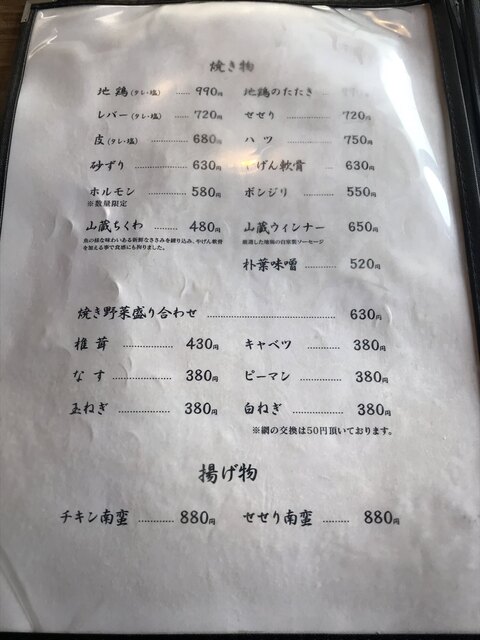 焼き物
地鶏(タレ・塩) ...... 990円 地鶏のたたき
レバー(タレ・塩) ...... 720円 せせり ...... 720円
皮(タレ・塩) ...... 680円 ハツ ...... 750円
砂ずり ...... 630円 げん軟骨 ...... 630円
ホルモン ...... 580円 ボンジリ ...... 550円
※数量限定
山蔵ちくわ ...... 480円 山蔵ウィンナー 650円
魚の様な味わいある新鮮なささみを練り込み、やげん軟骨 厳選した地鶏の自家製ソーセージ
を加える事で食感にも拘りました。
朴葉味噌 ...... 520円
焼き野菜盛り合わせ ...... 630円
椎茸 ...... 430円 キャベツ ...... 380円
なす ...... 380円 ピーマン ...... 380円
玉ねぎ ...... 380円 白ねぎ ...... 380円
※網の交換は50円頂いております。
揚げ物
チキン南蛮 ...... 880円 せせり南蛮 ...... 880円